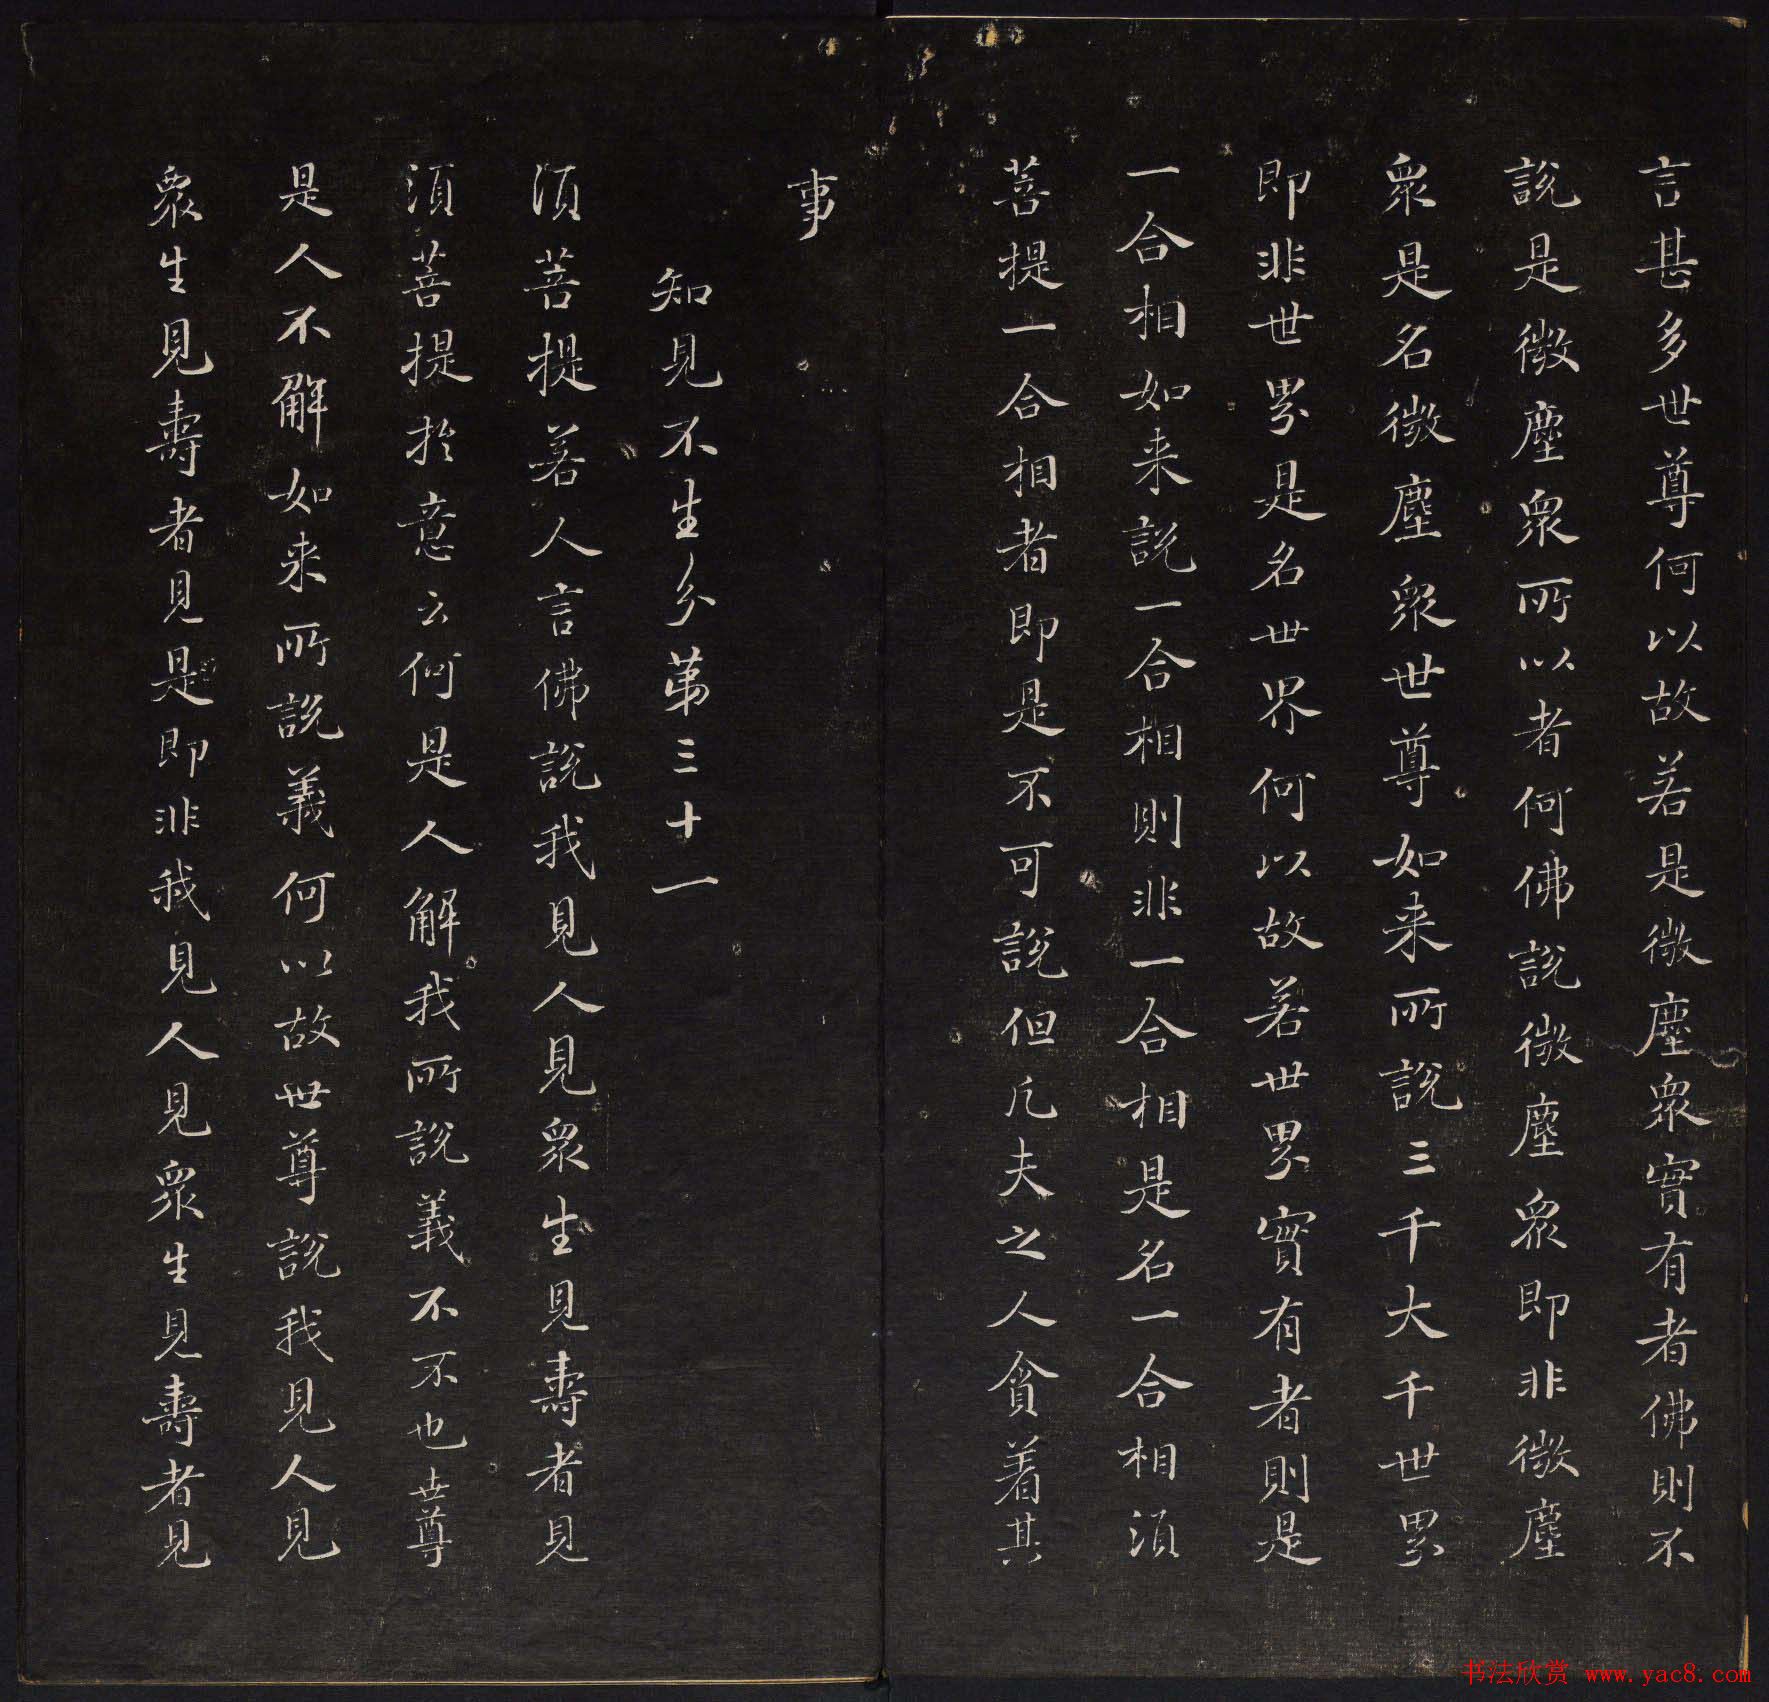 言甚多世尊何以故若是微塵衆實有者佛則不
說是微塵衆所以者何佛說微塵衆即非微塵
衆是名微塵衆世尊如来所說三千大千世界
即非世界是名世界何以故若世界實有者則是
一合相如来說一合相則非一合相是名一合相湏
菩提一合相者即是不可說但凡夫之人貪着其
事
知見不生分第三十一
湏菩提若人言佛說我見人見衆生見壽者見
湏菩提扵意云何是人解我所說義不不也世尊
是人不解如来所說義何以故世尊說我見人見
衆生見壽者見是即非我見人見衆生見壽者見
书法欣赏 www.yac8.com